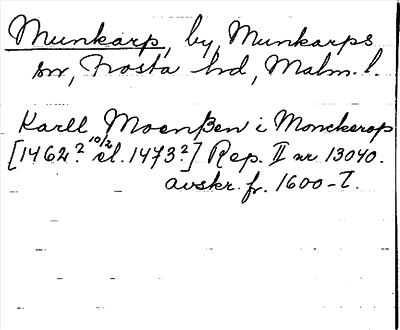 Munkarp, by, Munkarps
sn, Frosta hd, Malm. l.
Karll Moenßen i Monckerop
[1462? 10/2 el. 1473?] Rep. II nr 13040.
avskr. fr. 1600-t.